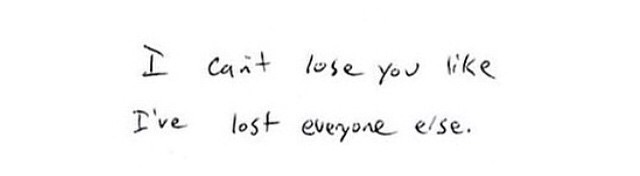 I can't lose you like
I've lost everyone else.